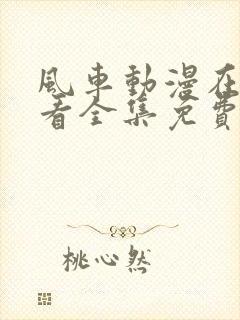 風車動漫在
看全集免費
桃心然